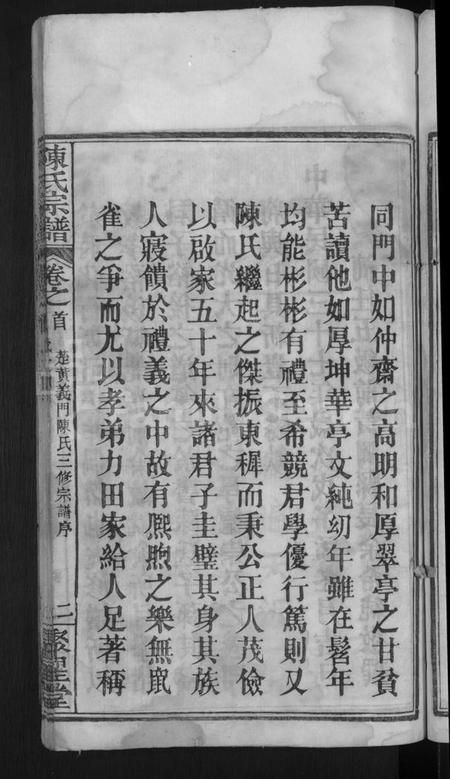 同門中如仲齋之高明和厚翠亭之甘貧
苦讀他如厚坤華亭文純㓜年雖在髫年
均能彬彬有禮至希競君學優行篤則又
陳氏繼起之傑振東穉而秉公正人茂儉
以啟家五十年來諸君子圭璧其身其族
人寢饋於禮義之中故有熈煦之樂無䑕
雀之爭而尤以孝弟力田家給人足著稱
陳氏宗譜
卷之首
楚黄義門陳氏三修宗譜序
二
聚星堂